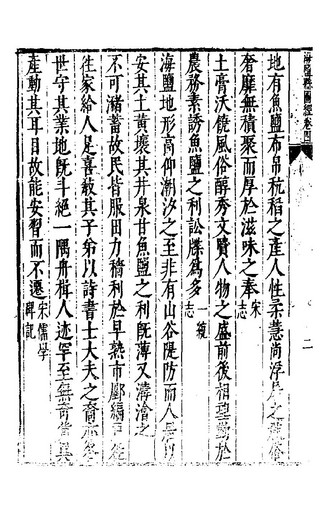 海鹽縣圖經卷四
二
地有魚鹽布帛秔稻之產人性柔慧尚浮屠之教俗
奢靡無積聚而厚於滋味之奉宋志
土膏沃饒風俗醇秀文賢人物之盛前後相望勤於
農務素誘魚鹽之利訟牒爲多一統志
海鹽地形高仰潮汐之至非有山谷隄防而人無
安其土黄壤其井泉甘魚鹽之利旣薄又瀦潴之
不可瀦蓄故民皆服田力穡利於早熟市鄽編戶往
往家給人足喜敎其子弟以詩書士大夫之裔亦各
世守其業地旣斗絕一隅舟楫人迹罕至無竒貨異
產動其耳目故能安習而不遷宋儒學碑記